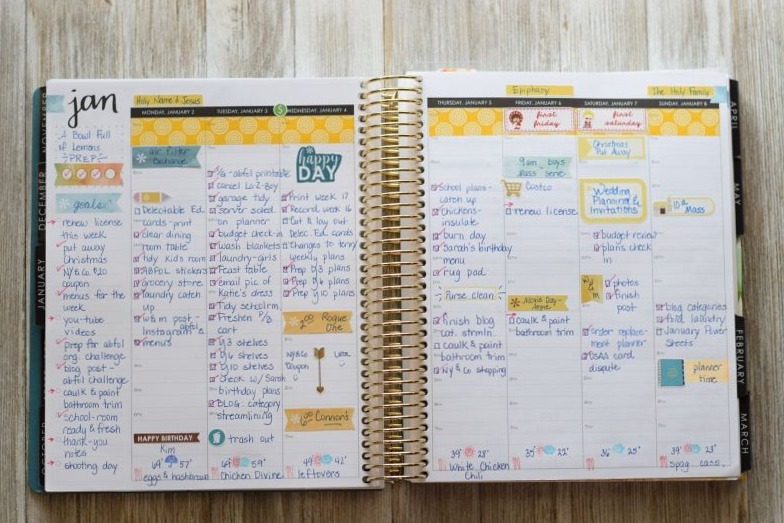 jan
Holy Name of Jesus
MONDAY, JANUARY 2
TUESDAY, JANUARY 3
WEDNESDAY, JANUARY 4
A Bowl Full
of Lemons
PREP
goals
renew license
this week
put away
Christmas
NY & Co $20
coupon
menus for the
week
you-tube
videos
prep for abfol
org. challenge
blog post -
abfol challenge
caulk & paint
bathroom trim
school-room
ready & fresh
thank-you
notes
shooting day
air filter
exchange
Delectable Ed.
cards-print
clear dining
room table
tidy kids room
ABFOL stickers
grocery store
laundry catch
up
post -
Instagram &
abfol
menus
HAPPY BIRTHDAY
Kim
eggs & hashbrowns
abfol printable
cancel La-Z-Boy
garage tidy
on planner
budget check-in
wash blankets
laundry-girls
Feast table
email pic of
Katie's dress
Tidy
Freshen
cart
shelves
shelves
shelves
check w/ Sarah
birthday plans
BLOG: category
streamlining
trash out
59°
Chicken Divine
happy
DAY
Print week 17
Record week 16
Cut & lay out
Delec. Ed. cards
changes to
weekly plans
Prep plans
Prep plans
Prep plans
Rogue
One
NY & Co
Coupon
Connor's
42°
leftovers
Epiphany
The Holy Family
THURSDAY, JANUARY 5
FRIDAY, JANUARY 6
SATURDAY, JANUARY 7
SUNDAY, JANUARY 8
School plans-
catch up
chickens-
insulate
burn day
Sarah's birthday
menu
rug pad
Purse clean
finish blog
cat. strmln.
caulk & paint
bathroom trim
NY & Co shopping
39° 28°
White Chicken
Chili
first
friday
9am boys
pass serve
Costco
renew license
caulk & paint
bathroom trim
35° 22°
first
saturday
Christmas
Put Away
Wedding
Planning &
Invitations
budget review
plans check
in
photos
finish
post
order replace-
ment planner
card
dispute
36° 25°
10am
Mass
blog categories
fold laundry
January Power
Sheets
planner
time
39° 23°
spag cass.
NOVEMBER
DECEMBER
JANUARY
APRIL
MAY
FEBRUARY
MARCH